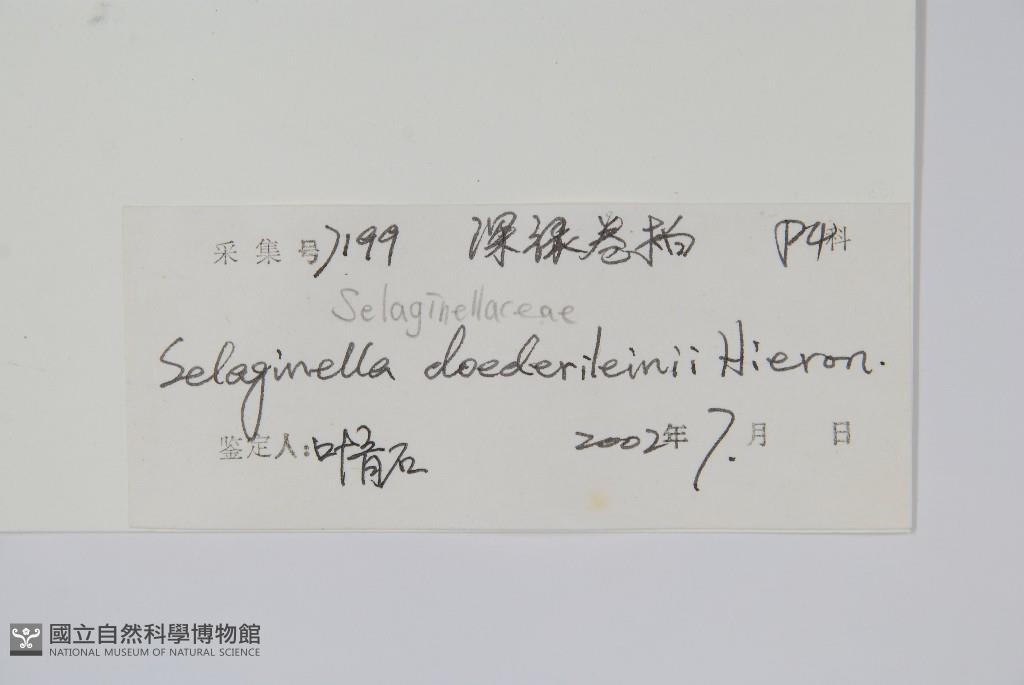 采集号 7199 深绿卷拍 P4科
Selaginellaceae
Selaginella doederileinii Hieron.
鉴定人:叶育石 2002年 7. 月 日
國立自然科學博物館
NATIONAL MUSEUM OF NATURAL SCIENCE